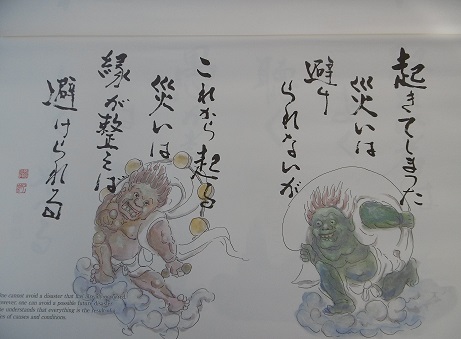 起きてしまった
災いは
避け
られないが
これから起る
災いは
縁が整えば
避けられる
One cannot avoid a disaster that has
However, one can avoid a possible future
understands that everything is the result
of causes and conditions.